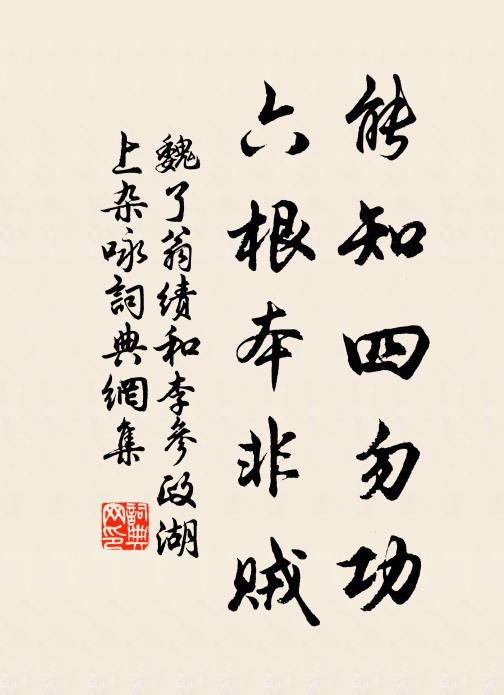 能知四勿功
六根本非賊
魏了翁績和李參政湖
上杂咏詞典網集
詞典
网印